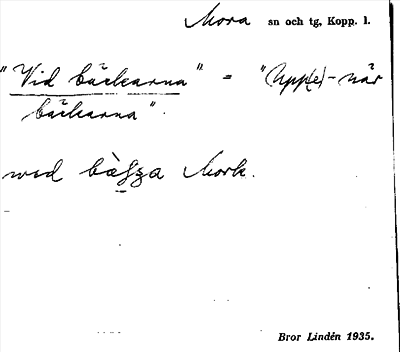 Mora sn och tg, Kopp. l.
"Vid bäckarna" = "(Upp(e)-när
bäckarna".
Mork.
Bror Lindén 1935.